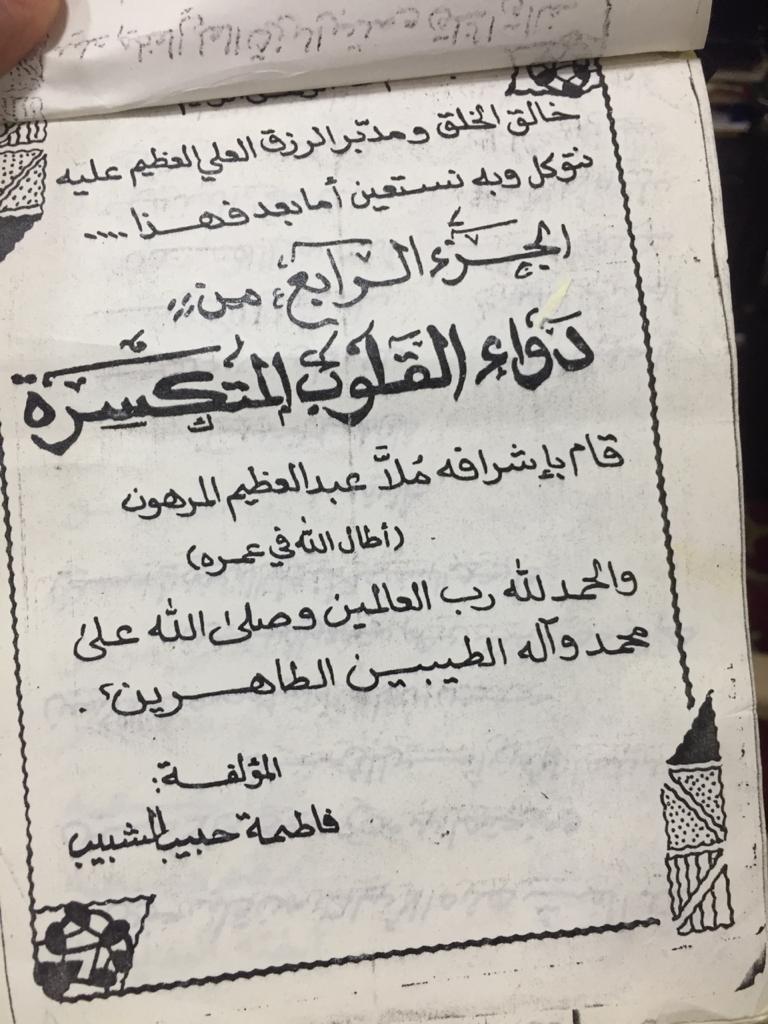 خالق الخلق ومدبّر الرزق العلي العظيم عليه
نتوكل وبه نستعين أما بعد فهذا ....
الجزء الرابع من
دواء القلوب المتكسرة
قام بإشرافه مُلاَّ عبدالعظيم المرهون
(أطال الله في عمره)
والحمد لله رب العالمين وصلى الله على
محمد وآله الطيبين الطاهرين .
المؤلفة:
فاطمة حبيب المشبيب